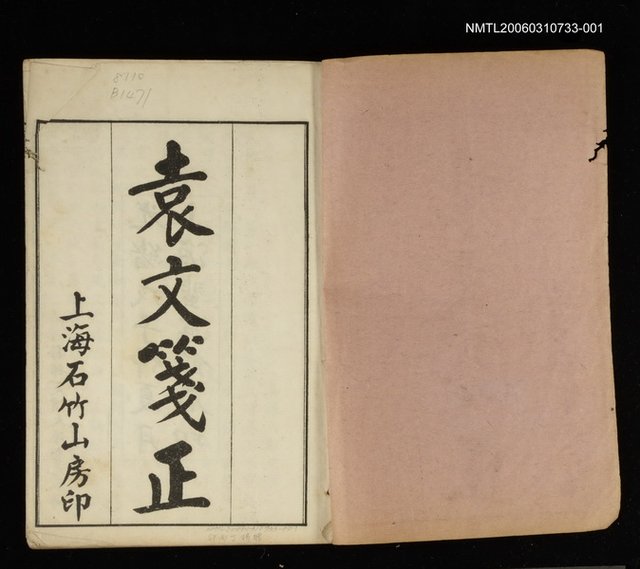 NMTL20060310733-001
8110
B1471
袁文箋正
上海石竹山房印